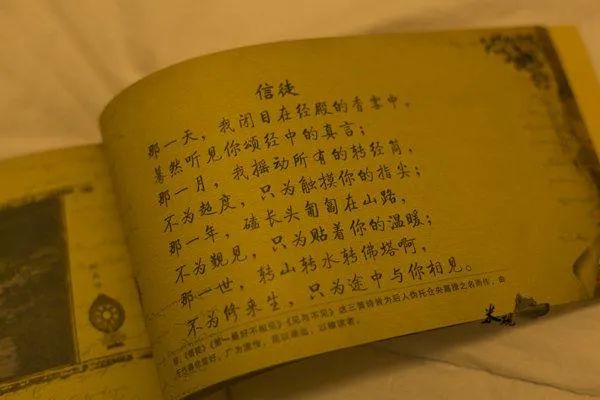 信徒
那一天，我闭目在经殿的香雾中，
蓦然听见你颂经中的真言；
那一月，我摇动所有的转经筒，
不为超度，只为触摸你的指尖；
那一年，磕长头匍匐在山路，
不为觐见，只为贴着你的温暖；
那一世，转山转水转佛塔啊，
不为修来生，只为途中与你相见。
《信徒》《第一最好不相见》《见与不见》这三首诗皆为后人伪托仓央嘉措之名而作，由
广为流传，以飨读者。